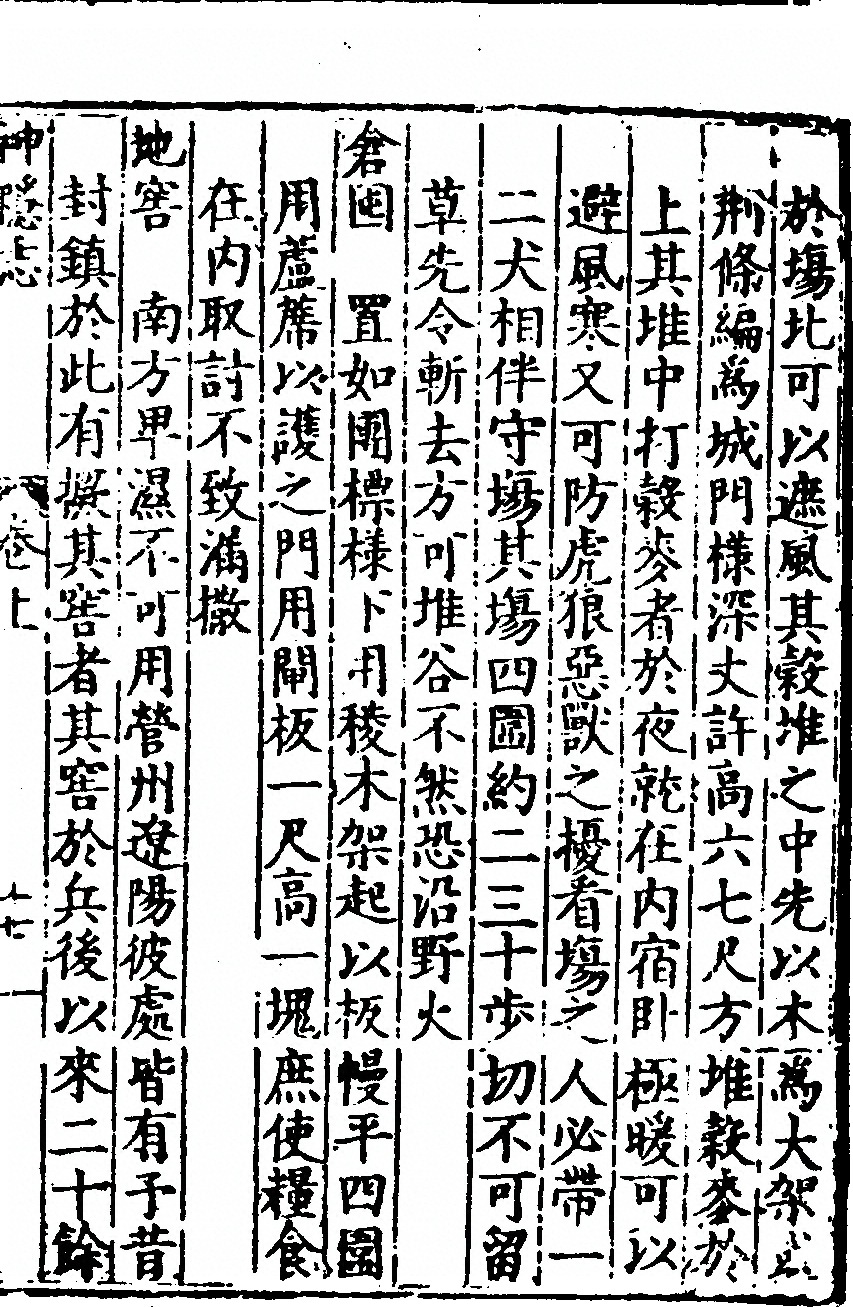 於塲北可以遮風其穀堆之中先以木爲大架
荆條編爲城門様深丈許高六七尺方堆穀麥於
上其堆中打穀麥者於夜就在内宿卧極暖可以
避風寒又可防虎狼惡獸之擾看塲之人必帶一
二犬相伴守塲其塲四圍約二三十歩切不可留
草先令斬去方可堆谷不然恐沿野火
倉囤　置如團標様下用稜木架起以板幔平四圍
用蘆蓆以護之門用閘板一尺高一塊庶使糧食
在内取討不致滿撒
地窖　南方卑濕不可用營州遼陽彼處皆有予昔
封鎮於此有掘其窖者其窖於兵後以來二十餘
神隱志　卷上　十七